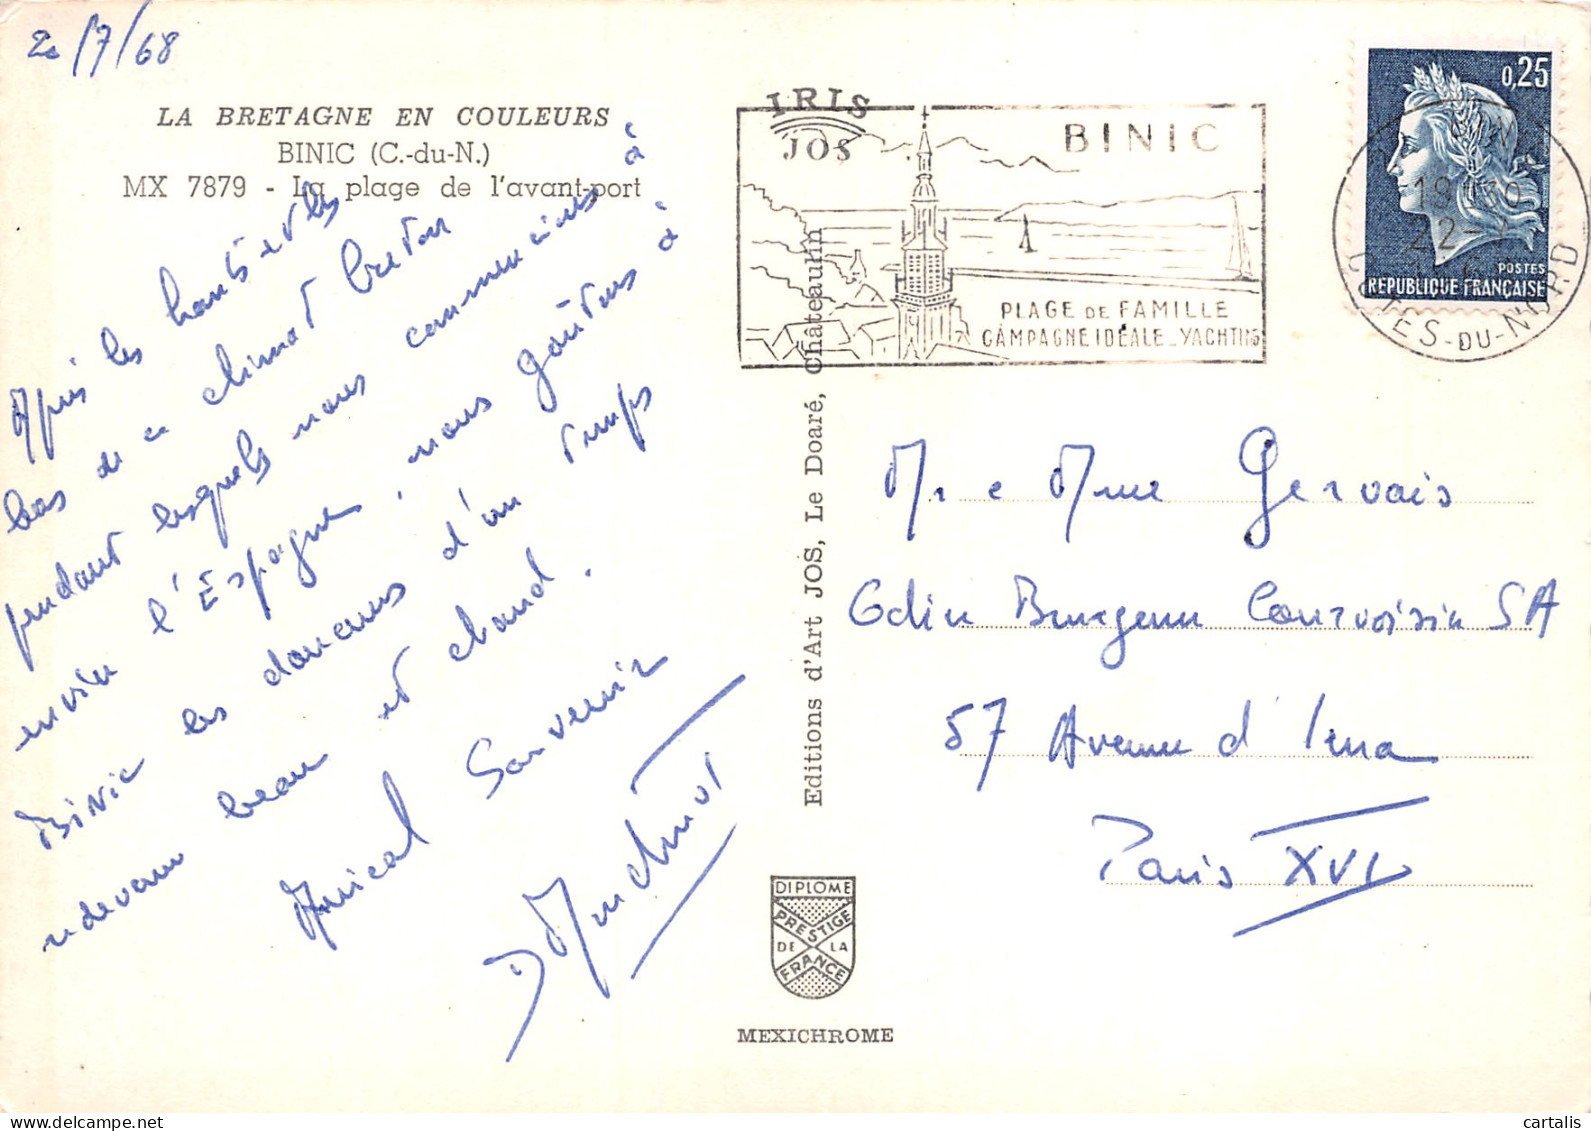 20/7/68
LA BRETAGNE EN COULEURS
BINIC (C.-du-N.)
MX 7879 - La plage de l'avant-port
Après les hauts et les
bas de ce climat breton
pendant lesquels nous commencions à
envier l'Espagne, nous goûtons à
Binic les douceurs d'un temps
redevenu beau et chaud.
Amical Souvenir
IRIS
JOS
BINIC
PLAGE DE FAMILLE
CAMPAGNE IDEALE - YACHTING
0,25
POSTES
REPUBLIQUE FRANÇAISE
19 H30
22-7
COTES-DU-NORD
Editions d'Art JOS, Le Doaré, Châteaulin
Mr e Mme Gervais
Edin Burgenn Courvoisin SA
57 Avenue d'Iena
Paris XVI
DIPLOME
PRESTIGE
DE LA
FRANCE
MEXICHROME
cartalis